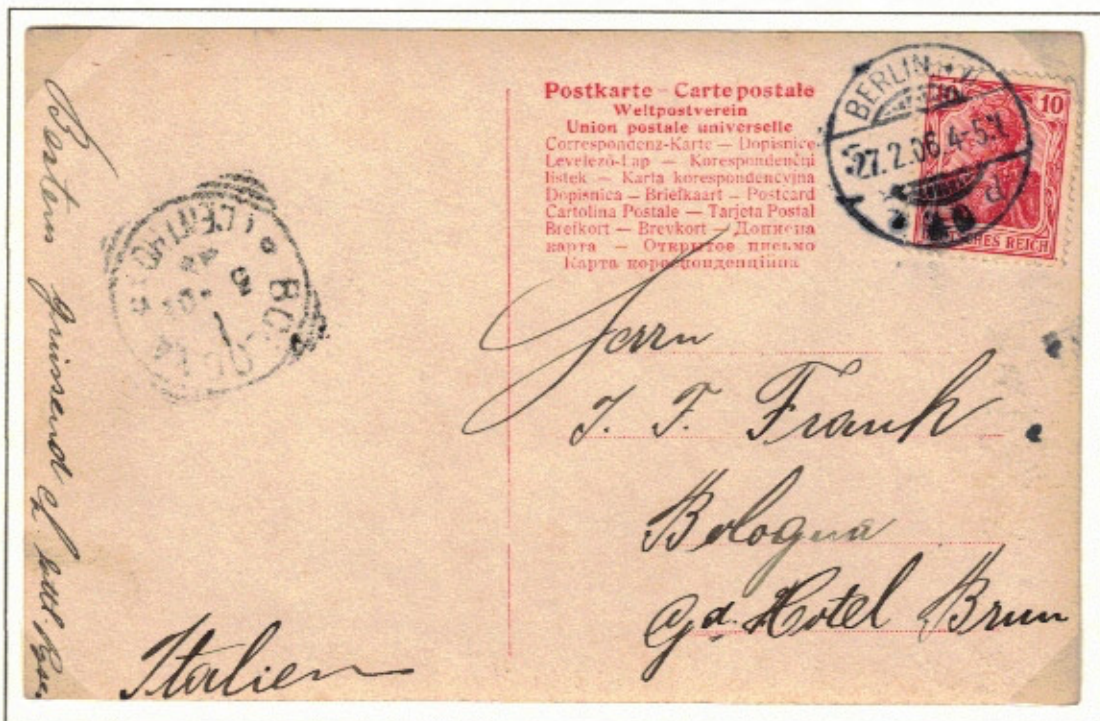 Postkarte – Carte postale
Weltpostverein
Union postale universelle
Correspondenz-Karte — Dopisnice
Levelező-Lap — Korespondenčni
listek — Karta korespondencyjna
Dopisnica — Briefkaart — Postcard
Cartolina Postale — Tarjeta Postal
Brefkort — Brevkort — Дописна
карта — Открытое письмо
Карта кореспонденційна
BERLIN
27.2.06.4-5N.
10
DEUTSCHES REICH
BOLOGNA
Herrn
J. F. Frank
Bologna
Gd. Hotel Brun
Italien
Bestens grüssend